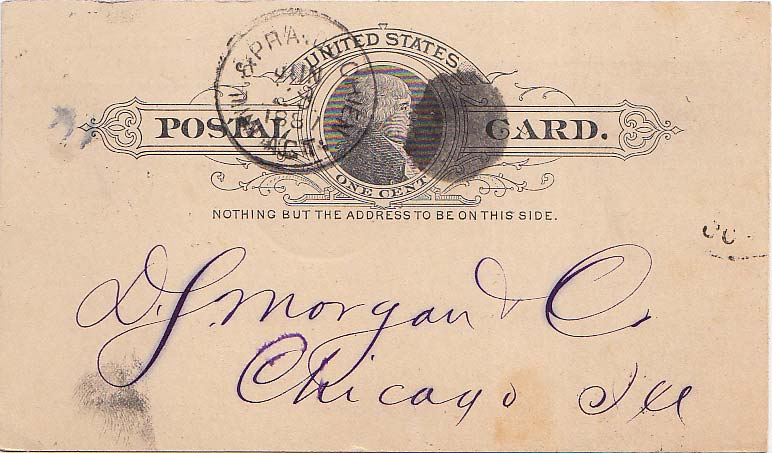 & PRA. CHIEN
JUN
188
AGT.
UNITED STATES
POSTAL CARD.
ONE CENT
NOTHING BUT THE ADDRESS TO BE ON THIS SIDE.
D. S. Morgan & Co
Chicago Ill